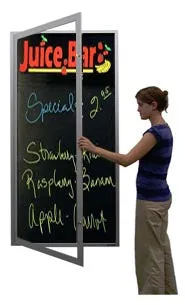 Juice Bar
Special 2.95
Strawberry-Kiwi
Raspberry-Banana
Apple-Carrot